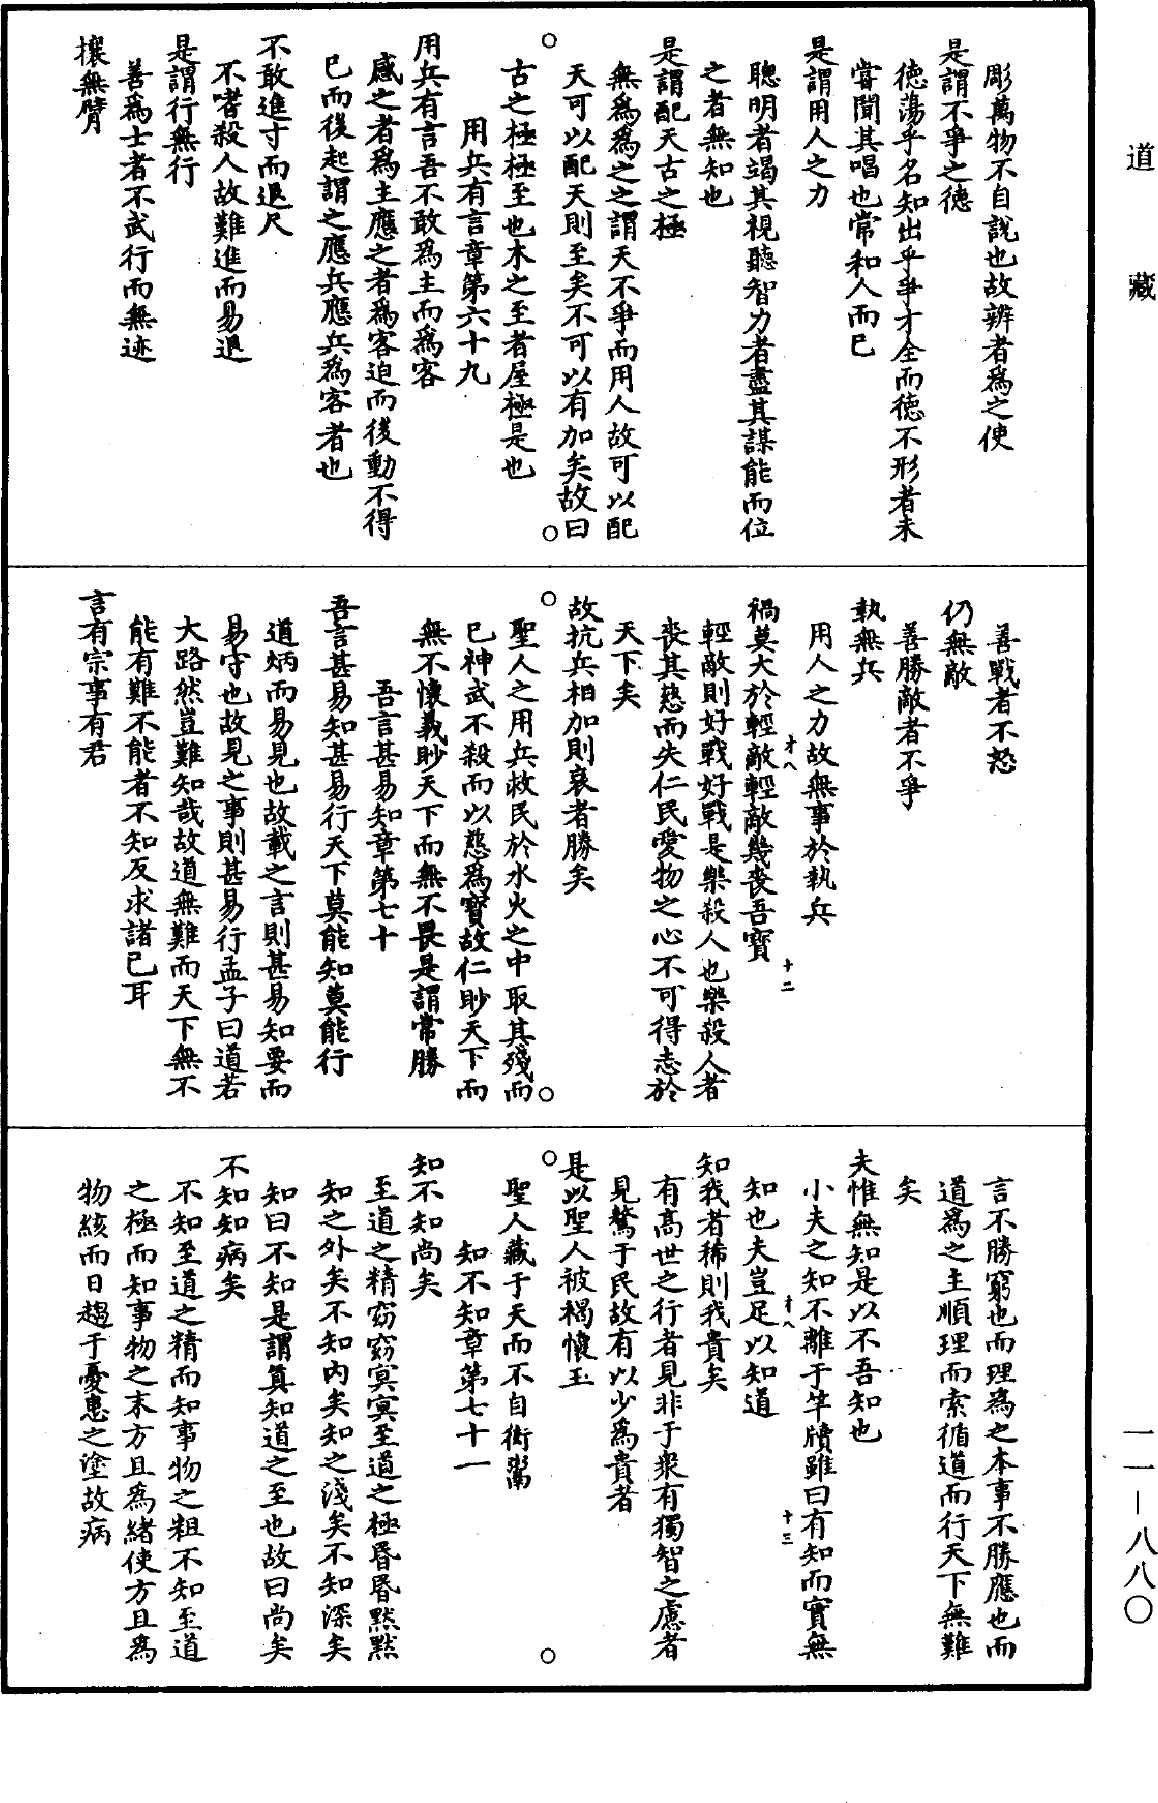 道藏
彫萬物不自說也故辨者爲之使
是謂不爭之德
德蕩乎名知出乎爭才全而德不形者未
嘗聞其唱也常和人而已
是謂用人之力
聰明者竭其視聽智力者盡其謀能而位
之者無知也
是謂配天古之極
無爲爲之之謂天不爭而用人故可以配
天可以配天則至矣不可以有加矣故曰
古之極極至也木之至者屋極是也
用兵有言章第六十九
用兵有言吾不敢爲主而爲客
感之者爲主應之者爲客迫而後動不得
已而後起謂之應兵應兵爲客者也
不敢進寸而退尺
不嗜殺人故難進而易退
是謂行無行
善爲士者不武行而無迹
攘無臂
善戰者不怒
仍無敵
善勝敵者不爭
執無兵
用人之力故無事於執兵
禍莫大於輕敵輕敵幾喪吾寶
才八
十二
輕敵則好戰好戰是樂殺人也樂殺人者
喪其慈而失仁民愛物之心不可得志於
天下矣
故抗兵相加則哀者勝矣
聖人之用兵救民於水火之中取其殘而
已神武不殺而以慈爲寶故仁眇天下而
無不懷義眇天下而無不畏是謂常勝
吾言甚易知章第七十
吾言甚易知甚易行天下莫能知莫能行
道炳而易見也故載之言則甚易知要而
易守也故見之事則甚易行孟子曰道若
大路然豈難知哉故道無難而天下無不
能有難不能者不知反求諸已耳
言有宗事有君
言不勝窮也而理爲之本事不勝應也而
道爲之主順理而索循道而行天下無難
矣
夫惟無知是以不吾知也
小夫之知不離于竿牘雖曰有知而實無
才八
十三
知也夫豈足以知道
知我者稀則我貴矣
有高世之行者見非于衆有獨智之慮者
見驁于民故有以少爲貴者
是以聖人被褐懷玉
聖人藏于天而不自衒鬻
知不知章第七十一
知不知尚矣
至道之精窈窈冥冥至道之極昏昏默默
知之外矣不知內矣知之淺矣不知深矣
知曰不知是謂真知道之至也故曰尚矣
不知知病矣
不知至道之精而知事物之粗不知至道
之極而知事物之末方且爲緒使方且爲
物絯而日趨于憂患之塗故病
一一—八八〇